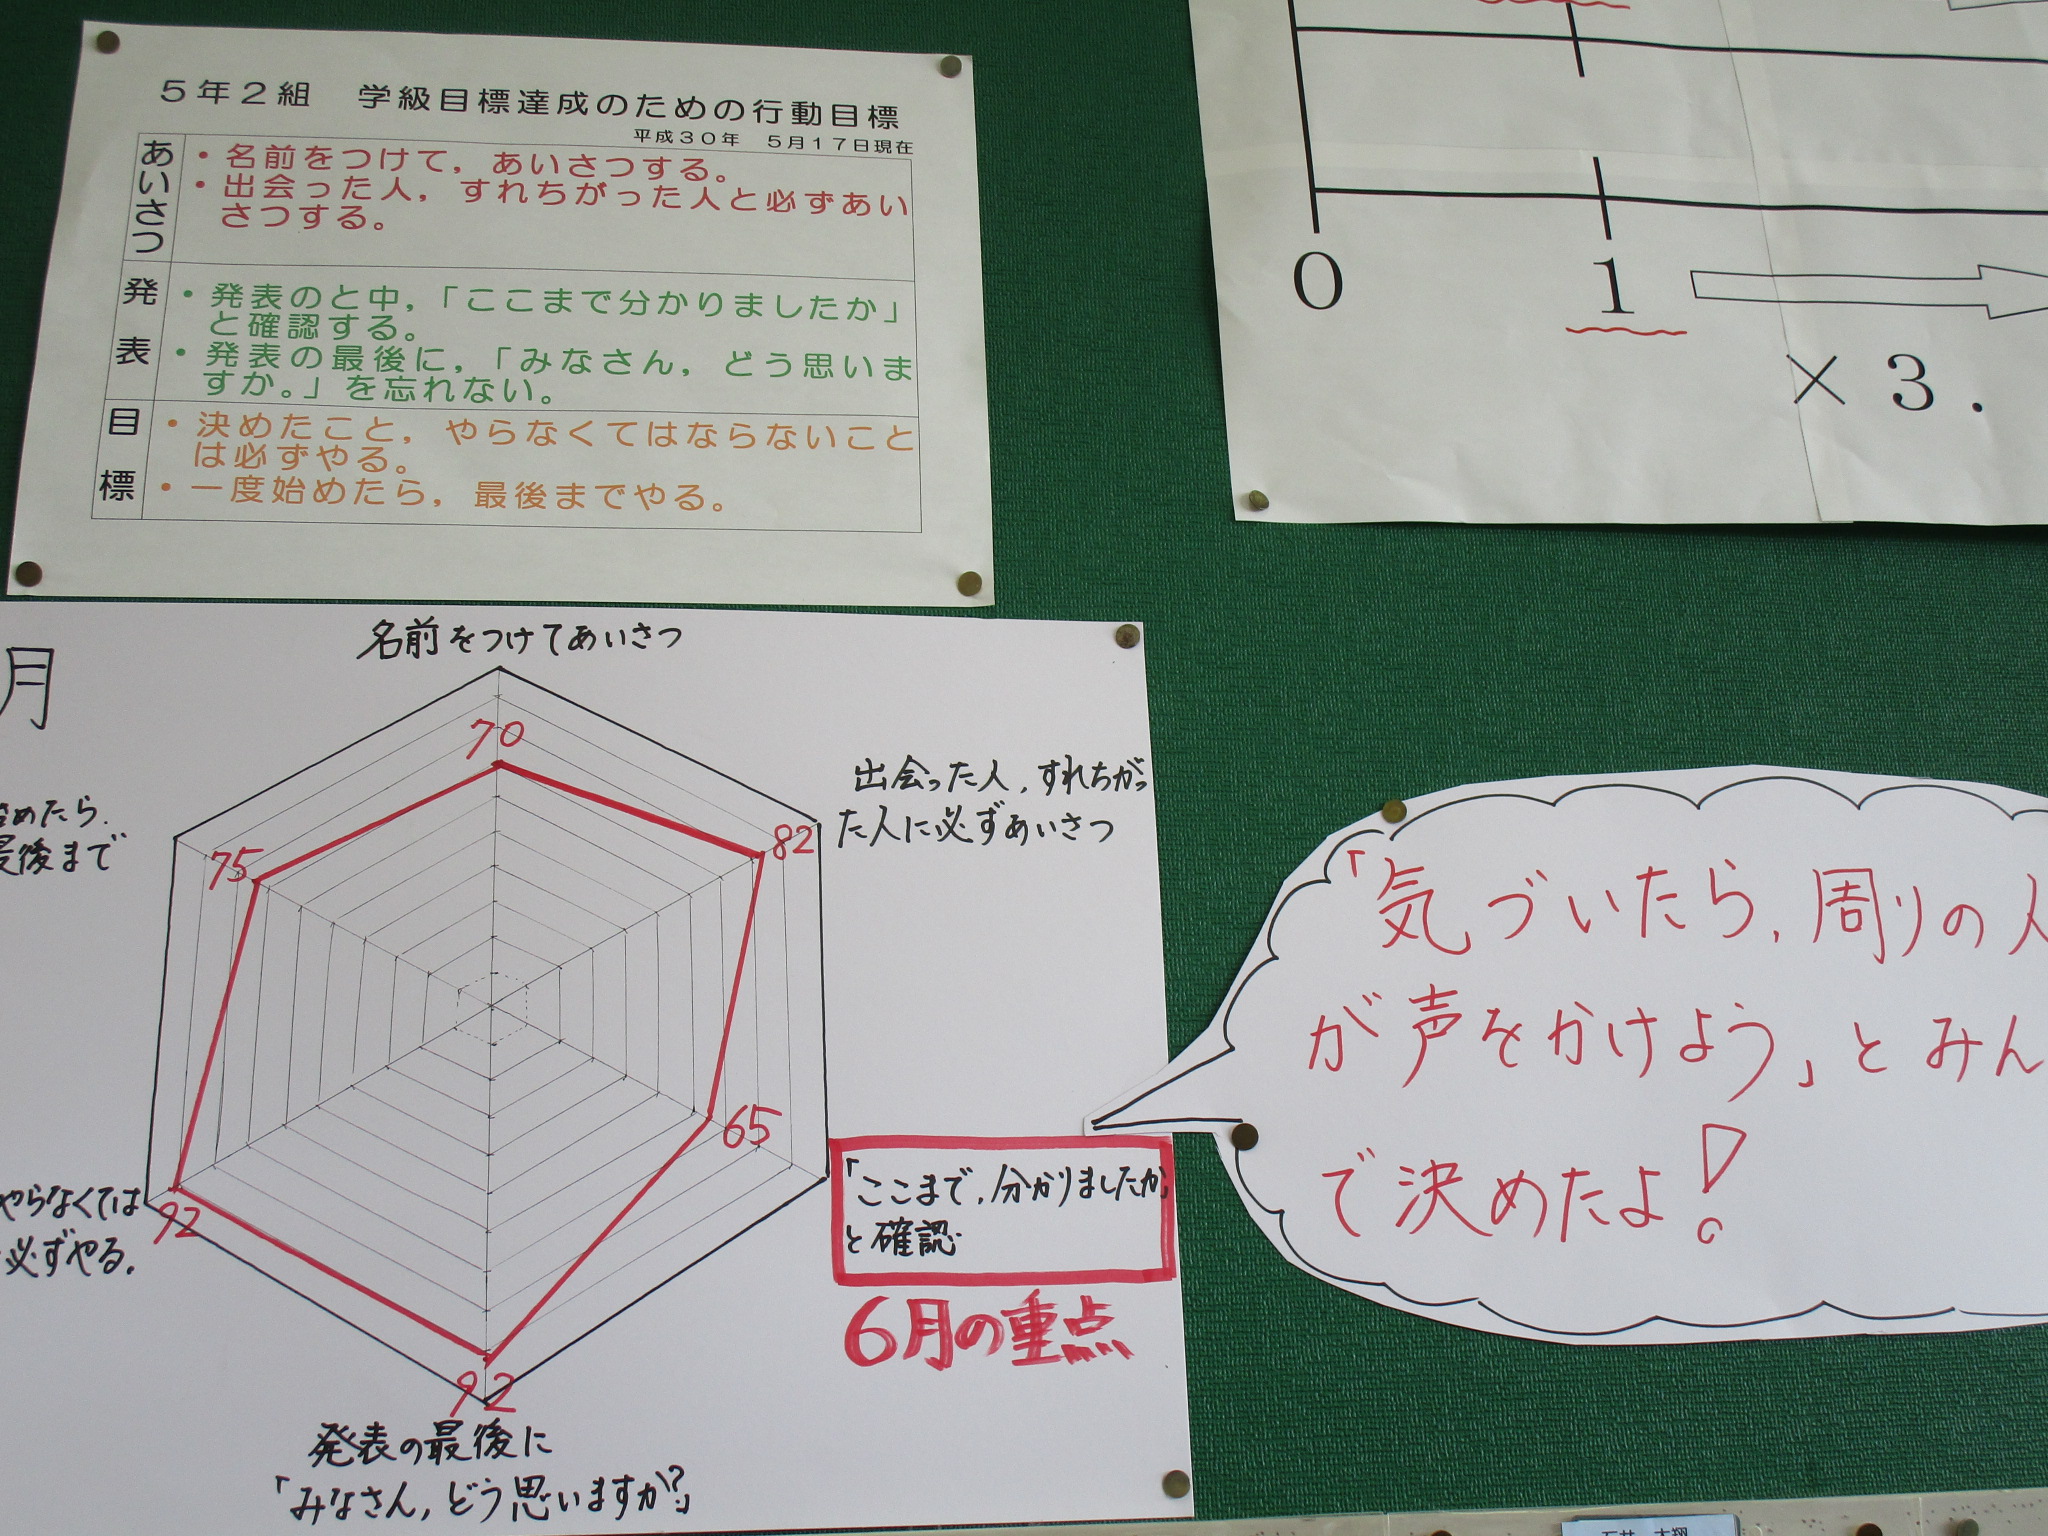 5年2組　学級目標達成のための行動目標
平成30年　5月17日現在
あいさつ
・名前をつけて，あいさつする。
・出会った人，すれちがった人と必ずあい
さつする。
発表
・発表のと中，「ここまで分かりましたか」
と確認する。
・発表の最後に，「みなさん，どう思いま
すか。」を忘れない。
目標
・決めたこと，やらなくてはならないこと
は必ずやる。
・一度始めたら，最後までやる。
0
1
×3.
月
名前をつけてあいさつ
70
出会った人，すれちがっ
た人に必ずあいさつ
82
めたら，
最後まで
75
65
「ここまで，分かりましたか」
と確認
6月の重点
やらなくては
必ずやる．
92
92
発表の最後に
「みなさん，どう思いますか？」
「気づいたら，周りの人
が声をかけよう」とみん
で決めたよ！